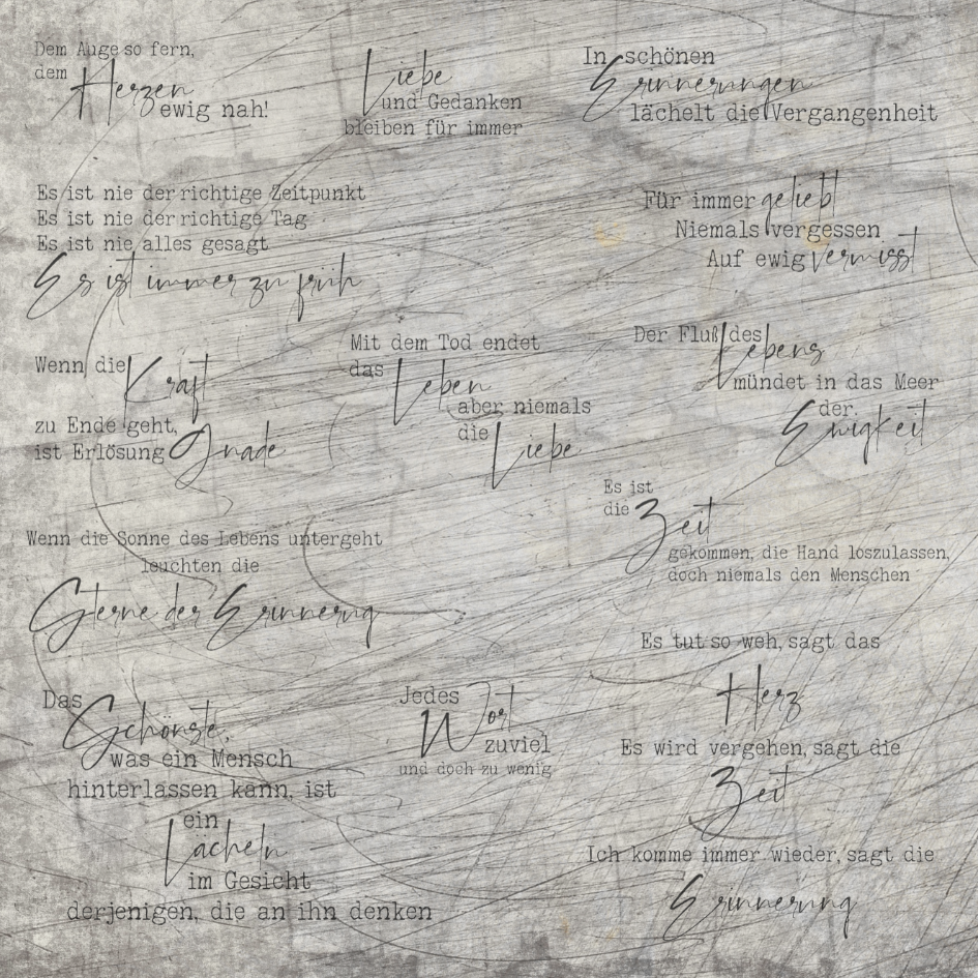 Dem Auge so fern,
dem Herzen
ewig nah!
Liebe
und Gedanken
bleiben für immer
In schönen
Erinnerungen
lächelt die Vergangenheit
Es ist nie der richtige Zeitpunkt
Es ist nie der richtige Tag
Es ist nie alles gesagt
Es ist immer zu früh
Für immer geliebt
Niemals vergessen
Auf ewig vermisst
Wenn die Kraft
zu Ende geht,
ist Erlösung Gnade
Mit dem Tod endet
das Leben
aber niemals
die Liebe
Der Fluß des
Lebens
mündet in das Meer
der
Ewigkeit
Es ist
die Zeit
gekommen, die Hand loszulassen,
doch niemals den Menschen
Wenn die Sonne des Lebens untergeht
leuchten die
Sterne der Erinnerng
Das
Schönste,
was ein Mensch
hinterlassen kann, ist
ein
Lächeln
im Gesicht
derjenigen, die an ihn denken
Jedes
Wort
zuviel
und doch zu wenig
Es tut so weh, sagt das
Herz
Es wird vergehen, sagt die
Zeit
Ich komme immer wieder, sagt die
Erinnerung